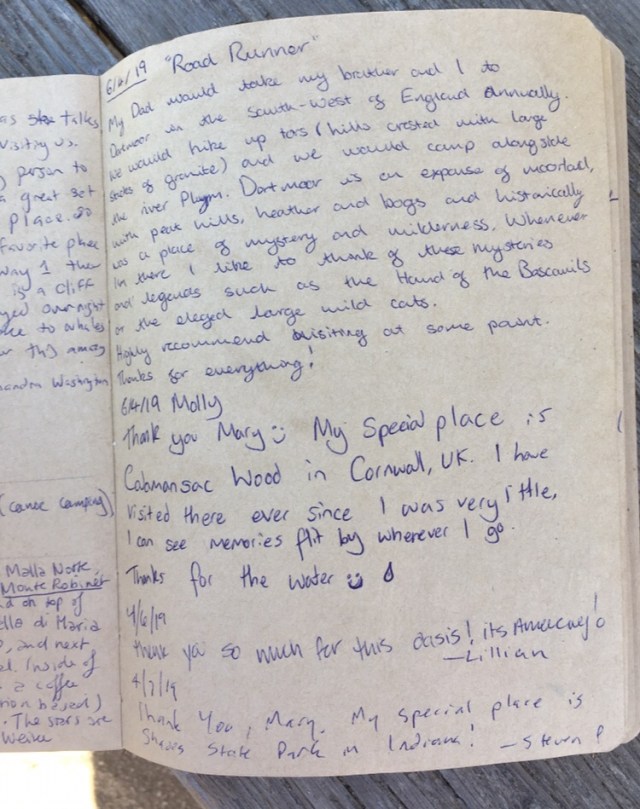 as talks
visiting us.
) person to
a great set
place. so
favorite place
way 1 then
is a cliff
yed overnight
to whales
Washington
(canoe camping)
Malla Norte,
Monte Robinet
d on top of
di Maria
, and next
Inside of
a coffee
based)
. The stars are
6/4/19 "Road Runner"
My Dad would take my brother and I to
Dartmoor in the south-west of England annually.
We would hike up tors (hills crested with large
stacks of granite) and we would camp alongside
the river Plym. Dartmoor is an expanse of moorland,
with peat hills, heather and bogs and historically
was a place of mystery and wilderness. Whenever
I'm there I like to thank of these mysteries
and legends such as the Hand of the
or the eleged large wild cats.
Highly recommend visiting at some point.
Thanks for everything!
6/4/19 Molly
Thank you Mary :) My Special place is
Cabmansac Wood in Cornwall, UK. I have
visited there ever since I was very little,
I can see memories flit by wherever I go.
Thanks for the water :)
4/6/19
thank you so much for this oasis! its Amazing!
—Lillian
4/7/19
Thank You, Mary. My special place is
Shades State Park in Indiana! —Steven P